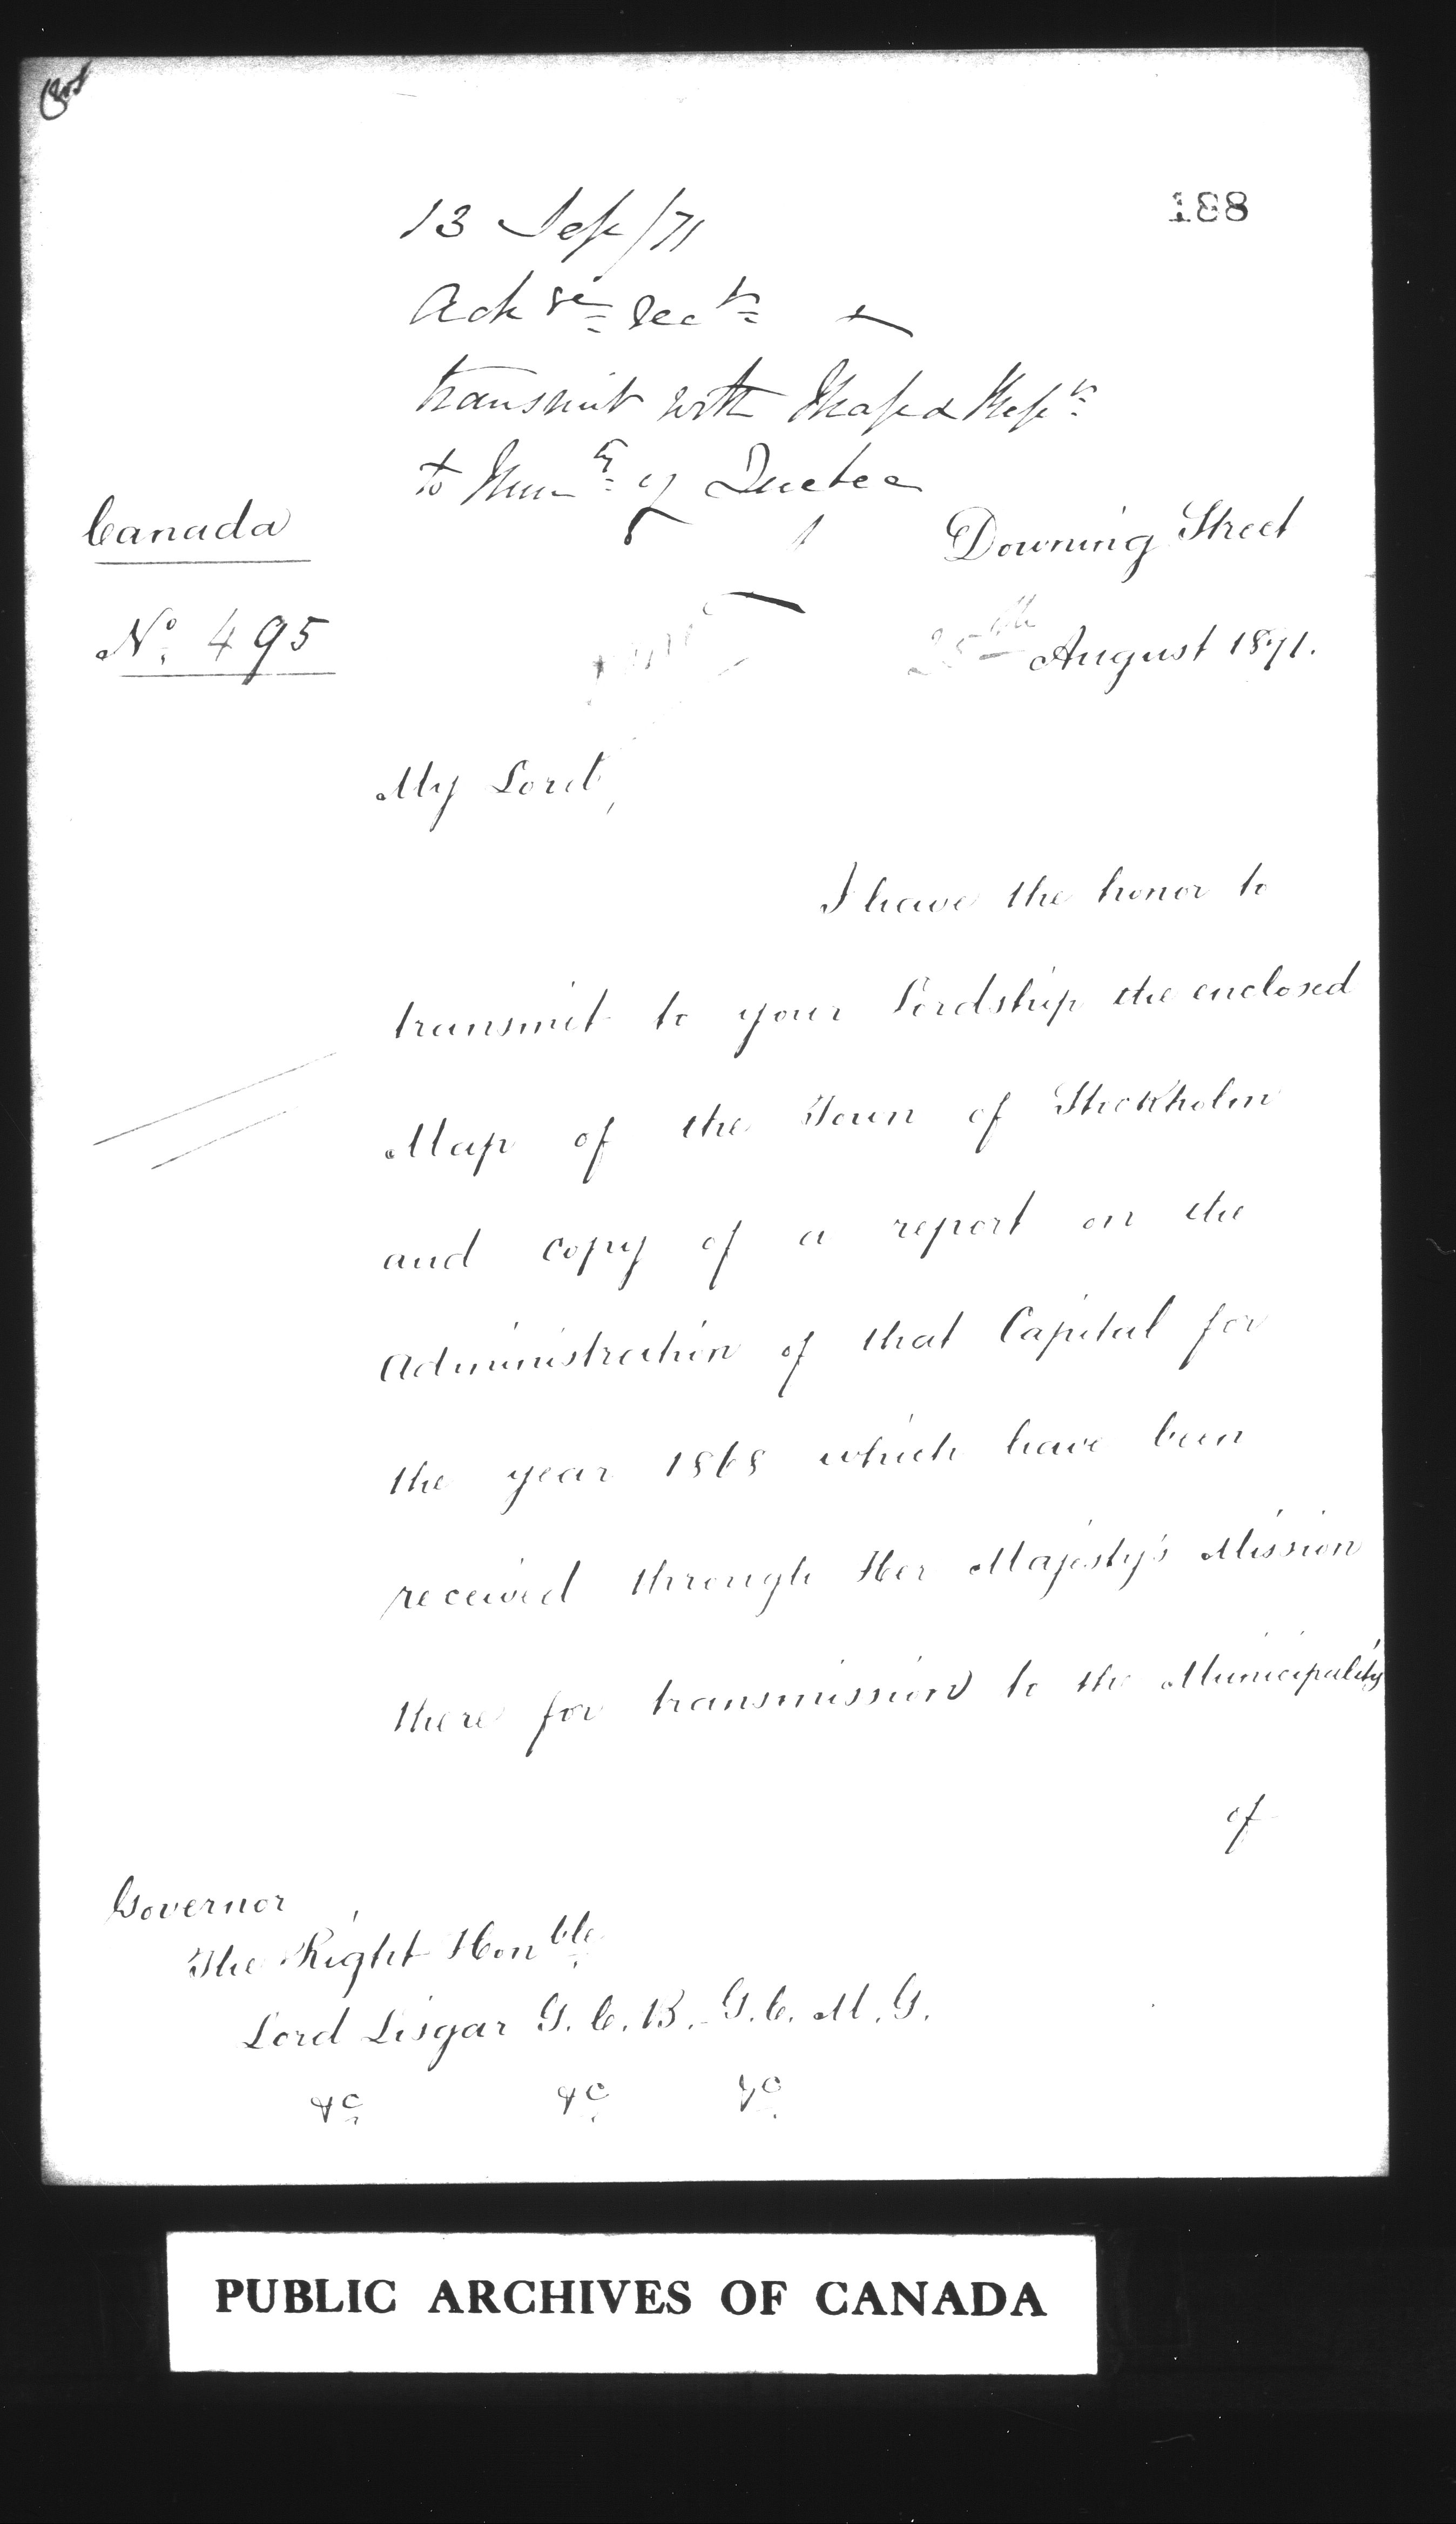 188
13 Sep/71
Ack Rec^t &
transmit with Map & Rep^t
to Mun^ty of Quebec
Canada
Nº 495
Downing Street
25th August 1871.
My Lord,
I have the honor to
transmit to your Lordship the enclosed
Map of the Town of Stockholm
and copy of a report on the
Administration of that Capital for
the year 1868 which have been
received through Her Majesty's Mission
there for transmission to the Municipality
of
Governor
The Right Hon^ble
Lord Lisgar G.C.B. G.C.M.G.
&c &c &c
PUBLIC ARCHIVES OF CANADA